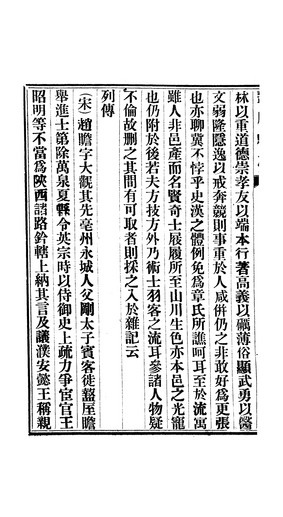 林以重道德崇孝友以端本行著高義以礪薄俗顯武勇以醫
文弱隆隱逸以戒奔競則事重於人咸併仍之非敢好爲更張
也亦聊冀不悖乎史漢之體例免爲章氏所譙呵耳至於流寓
雖人非邑產而名賢奇士屐履所至山川生色亦本邑之光寵
也仍附於後若夫方技方外乃術士羽客之流耳參諸人物疑
不倫故刪之其間有可取者則採之入於雜記云
列傳
(宋)趙瞻字大觀其先亳州永城人父剛太子賓客徙盩厔瞻
舉進士第除萬泉夏縣令英宗時以侍御史上疏力爭宦官王
昭明等不當爲陝西諸路鈐轄上納其言及議濮安懿王稱親